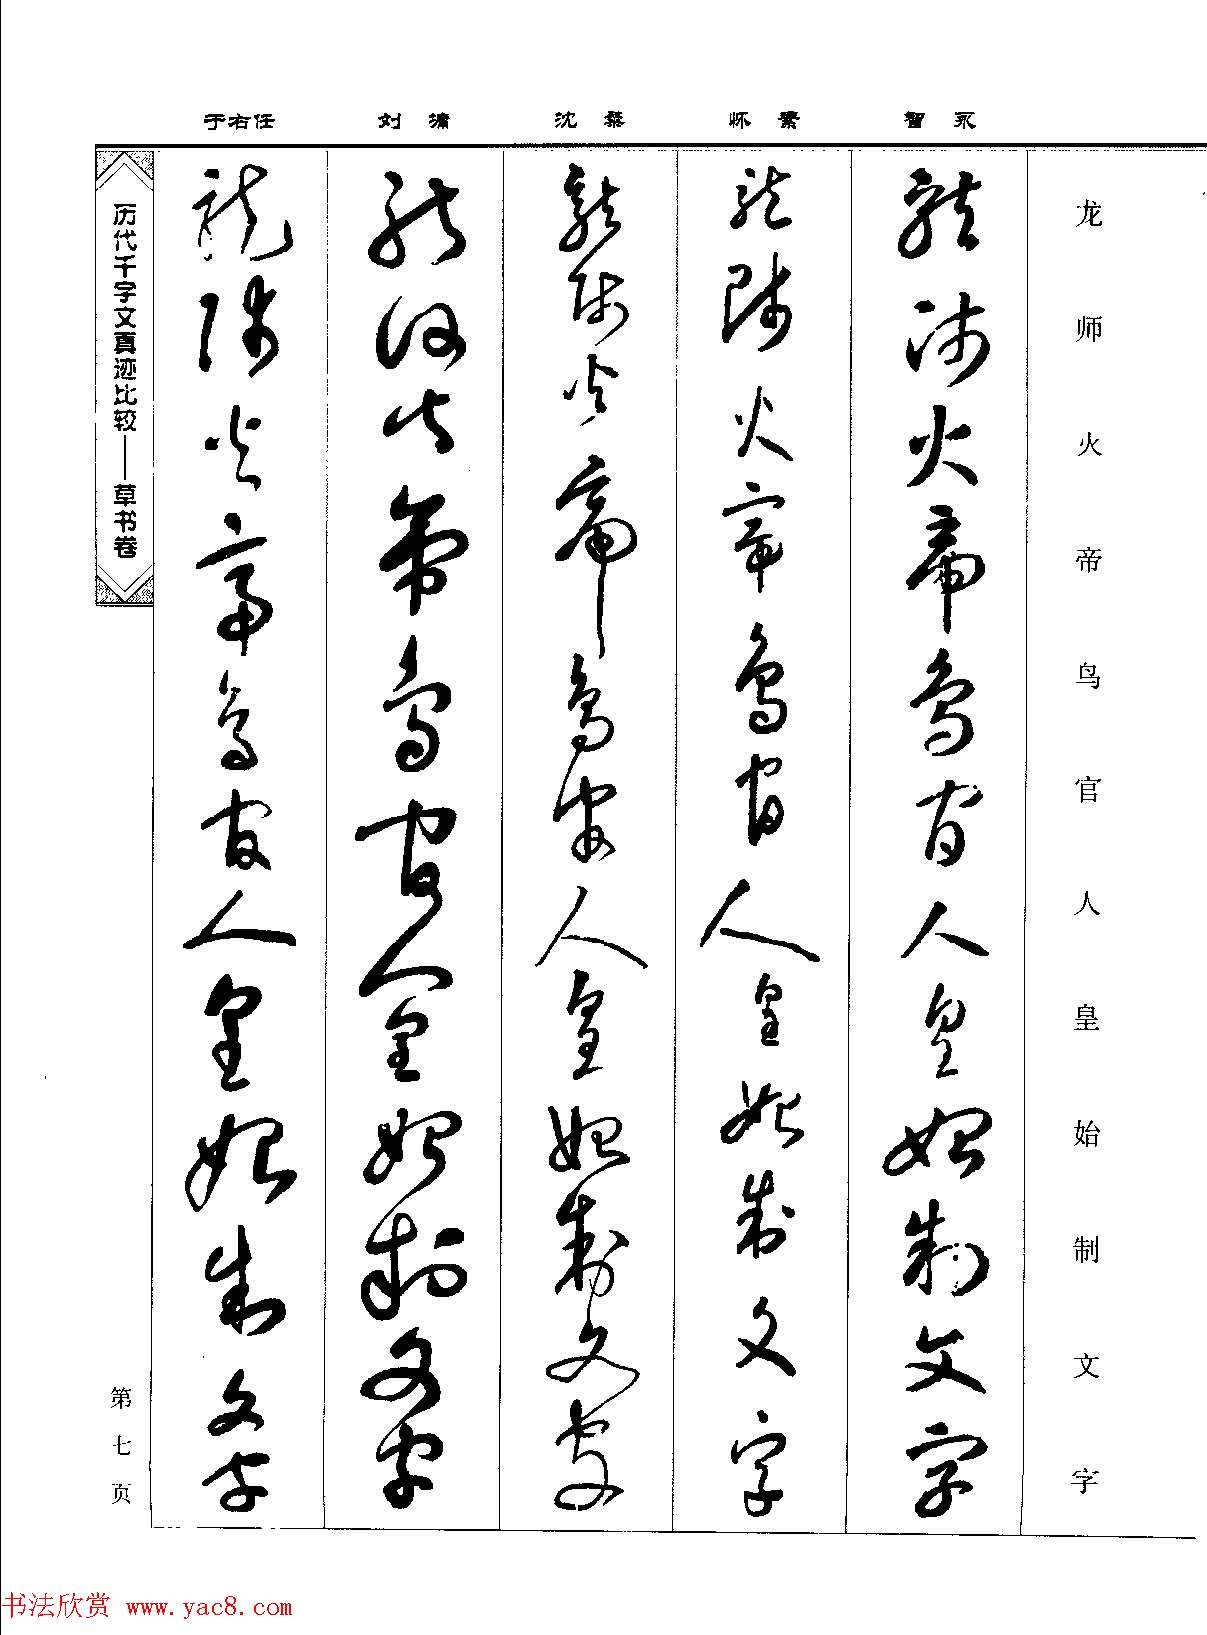 智永
怀素
沈粲
刘墉
于右任
龙师火帝鸟官人皇始制文字
龍師火帝鳥官人皇始制文字
龍師火帝鳥官人皇始制文字
龍師火帝鳥官人皇始制文字
龍師火帝鳥官人皇始制文字
龍師火帝鳥官人皇始制文字
历代千字文真迹比较——草书卷
第七页
书法欣赏 www.yac8.com